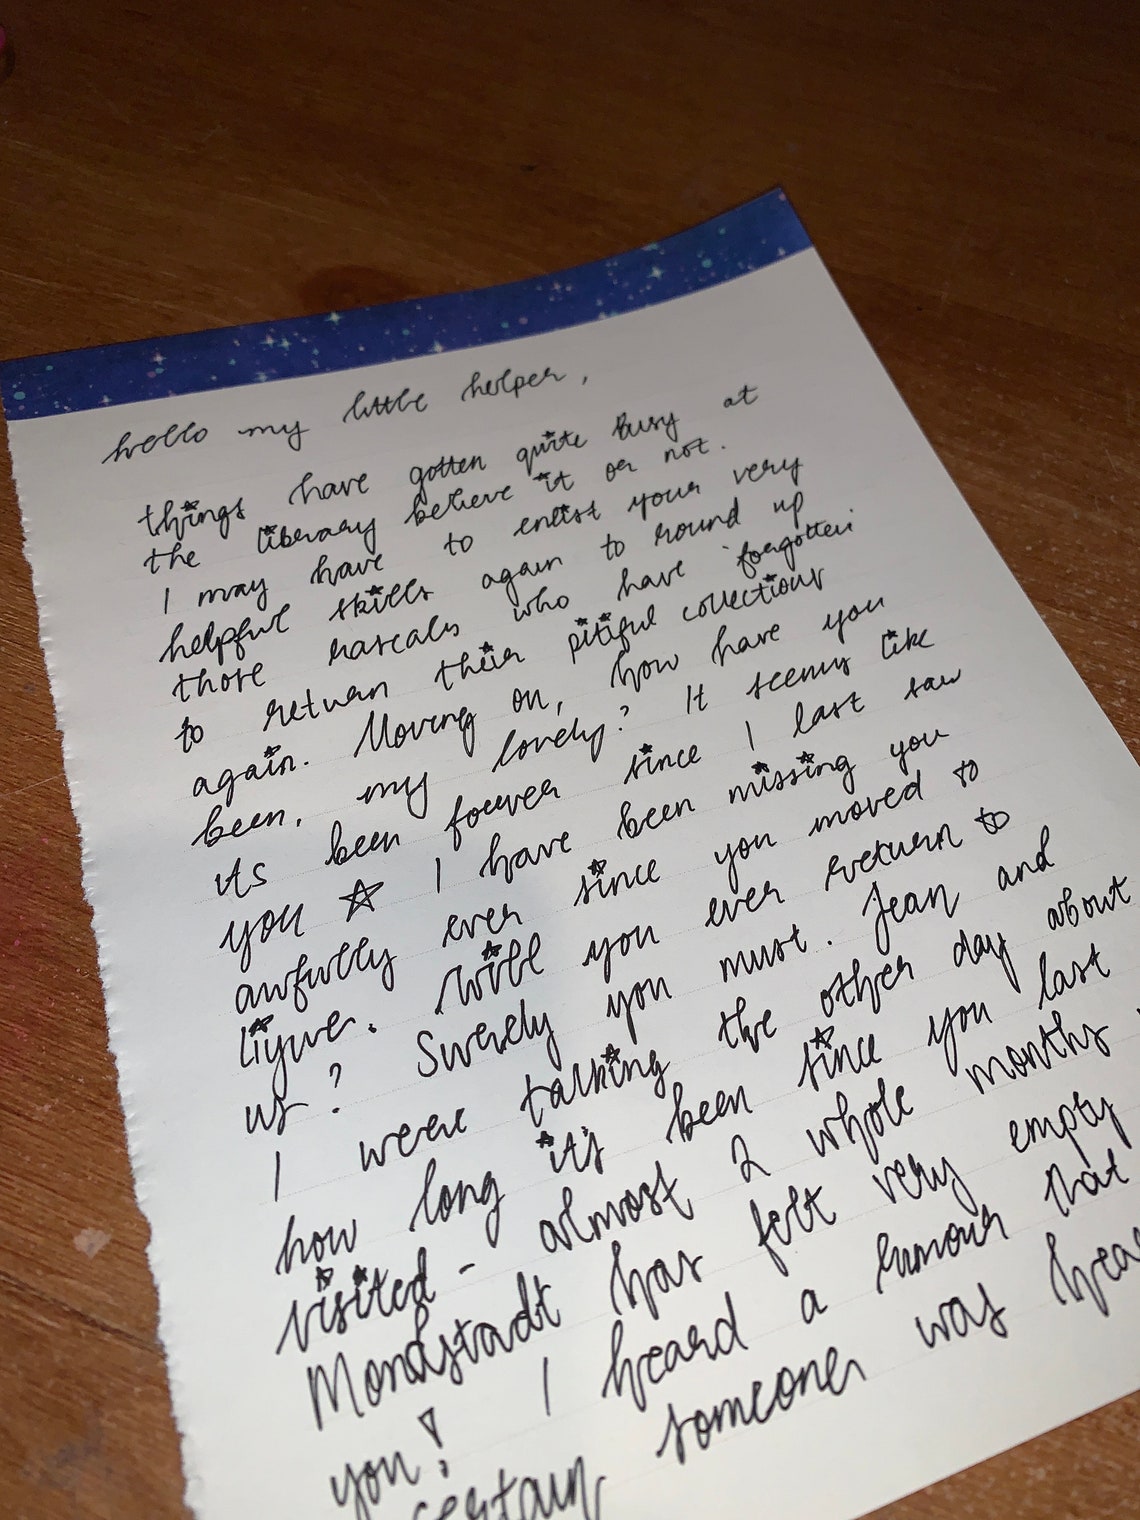 hello my little helper,
things have gotten quite busy at
the library believe it or not.
I may have to enlist your very
helpful skills again to round up
those rascals who have 'forgotten'
to return their pitiful collections
again. Moving on, how have you
been, my lovely? It seems like
its been forever since I last saw
you ☆ I have been missing you
awfully ever since you moved to
Liyue. Will you ever return to
us? Surely you must. Jean and
I were talking the other day about
how long it's been since you last
visited - almost 2 whole months
Mondstadt has felt very empty
you! I heard a rumour that
certain someone was